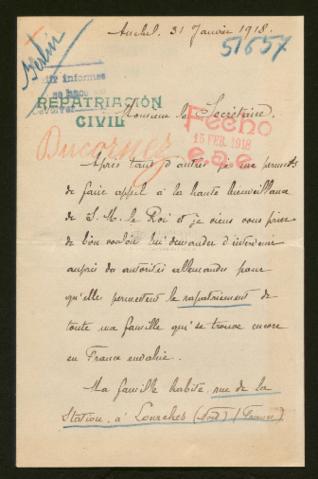 Auchel. 31 Janvier 1918.
51657
Berlin
REPATRIACIÓN
CIVIL
Fecho
15 FEB. 1918
Monsieur le Secrétaire.
Ducornez
Après tant d'autres je me permets
de faire appel à la haute bienveillance
de S. M. le Roi et je viens vous prier
de bien vouloir lui demander d'intervenir
auprès des autorités allemandes pour
qu'elle permettent le rapatriement de
toute ma famille qui se trouve encore
en France envahie.
Ma famille habite, rue de la
Station, à Lourches (Nord) (France)